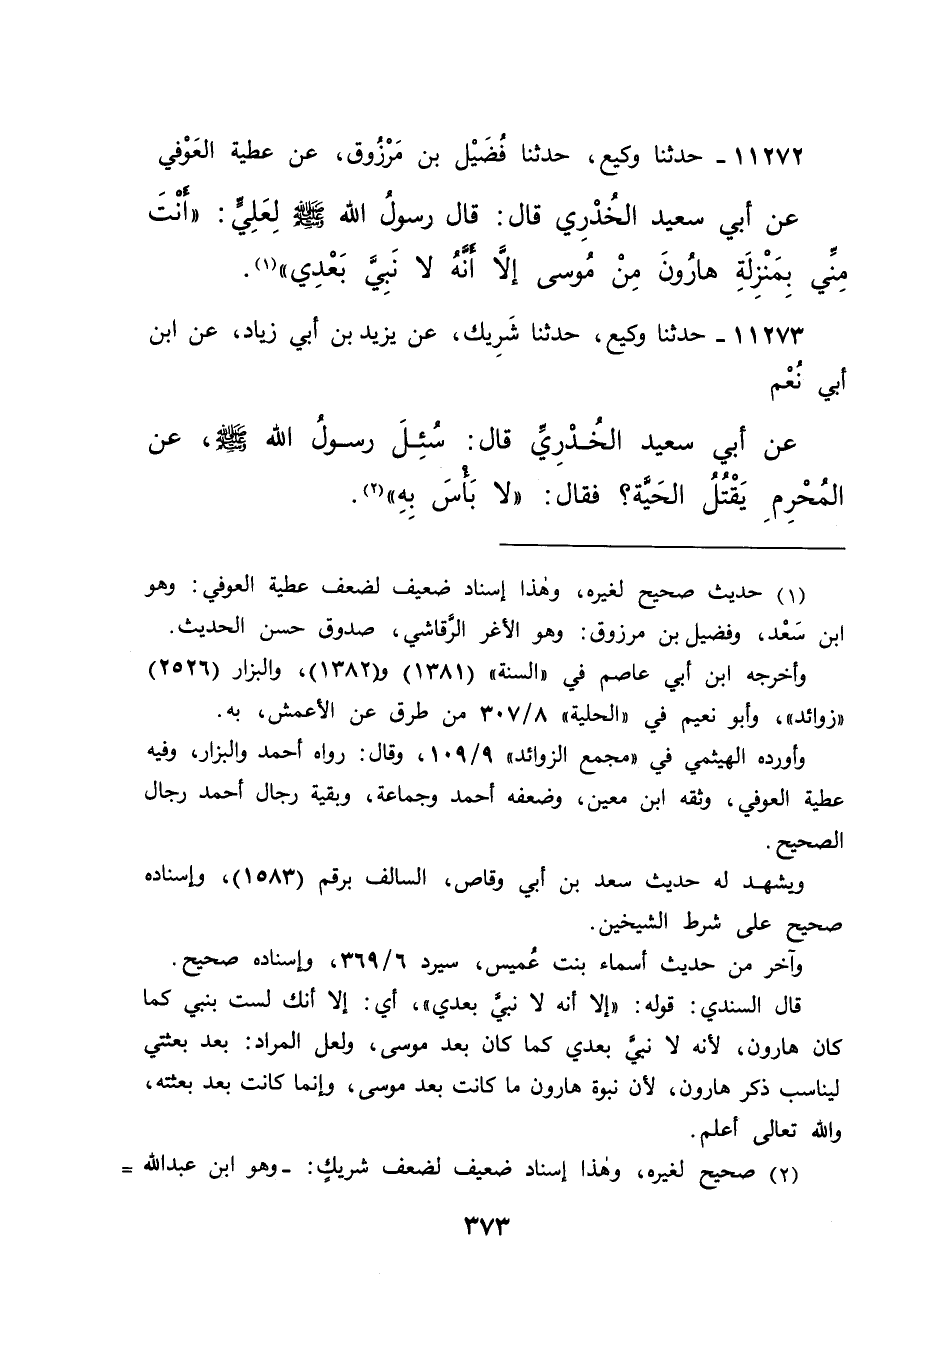 ١١٢٧٢ ـ حدثنا وكيع، حدثنا فُضَيْل بن مَرْزُوق، عن عطية العَوْفي
عن أبي سعيد الخُدْرِي قال: قال رسولُ الله ﷺ لِعَلِيٍّ: «أَنْتَ
مِنِّي بِمَنْزِلَةِ هارُونَ مِنْ مُوسى إلَّا أَنَّهُ لا نَبِيَّ بَعْدِي»(١).
١١٢٧٣ ـ حدثنا وكيع، حدثنا شَرِيك، عن يزيد بن أبي زياد، عن ابن
أبي نُعْم
عن أبي سعيد الخُدْرِيِّ قال: سُئِلَ رسولُ الله ﷺ، عن
المُحْرِمِ يَقْتُلُ الحَيَّة؟ فقال: «لا بَأْسَ بِهِ»(٢).
(١) حديث صحيح لغيره، وهٰذا إسناد ضعيف لضعف عطية العوفي: وهو
ابن سَعْد، وفضيل بن مرزوق: وهو الأغر الرَّقاشي، صدوق حسن الحديث.
وأخرجه ابن أبي عاصم في «السنة» (١٣٨١) و(١٣٨٢)، والبزار (٢٥٢٦)
«زوائد»، وأبو نعيم في «الحلية» ٣٠٧/٨ من طرق عن الأعمش، به.
وأورده الهيثمي في «مجمع الزوائد» ١٠٩/٩، وقال: رواه أحمد والبزار، وفيه
عطية العوفي، وثقه ابن معين، وضعفه أحمد وجماعة، وبقية رجال أحمد رجال
الصحيح.
ويشهد له حديث سعد بن أبي وقاص، السالف برقم (١٥٨٣)، وإسناده
صحيح على شرط الشيخين.
وآخر من حديث أسماء بنت عُميس، سيرد ٣٦٩/٦، وإسناده صحيح.
قال السندي: قوله: «إلا أنه لا نبيَّ بعدي»، أي: إلا أنك لست بنبي كما
كان هارون، لأنه لا نبيَّ بعدي كما كان بعد موسى، ولعل المراد: بعد بعثتي
ليناسب ذكر هارون، لأن نبوة هارون ما كانت بعد موسى، وإنما كانت بعد بعثته،
والله تعالى أعلم.
(٢) صحيح لغيره، وهٰذا إسناد ضعيف لضعف شريكٍ: ـ وهو ابن عبدالله =
٣٧٣